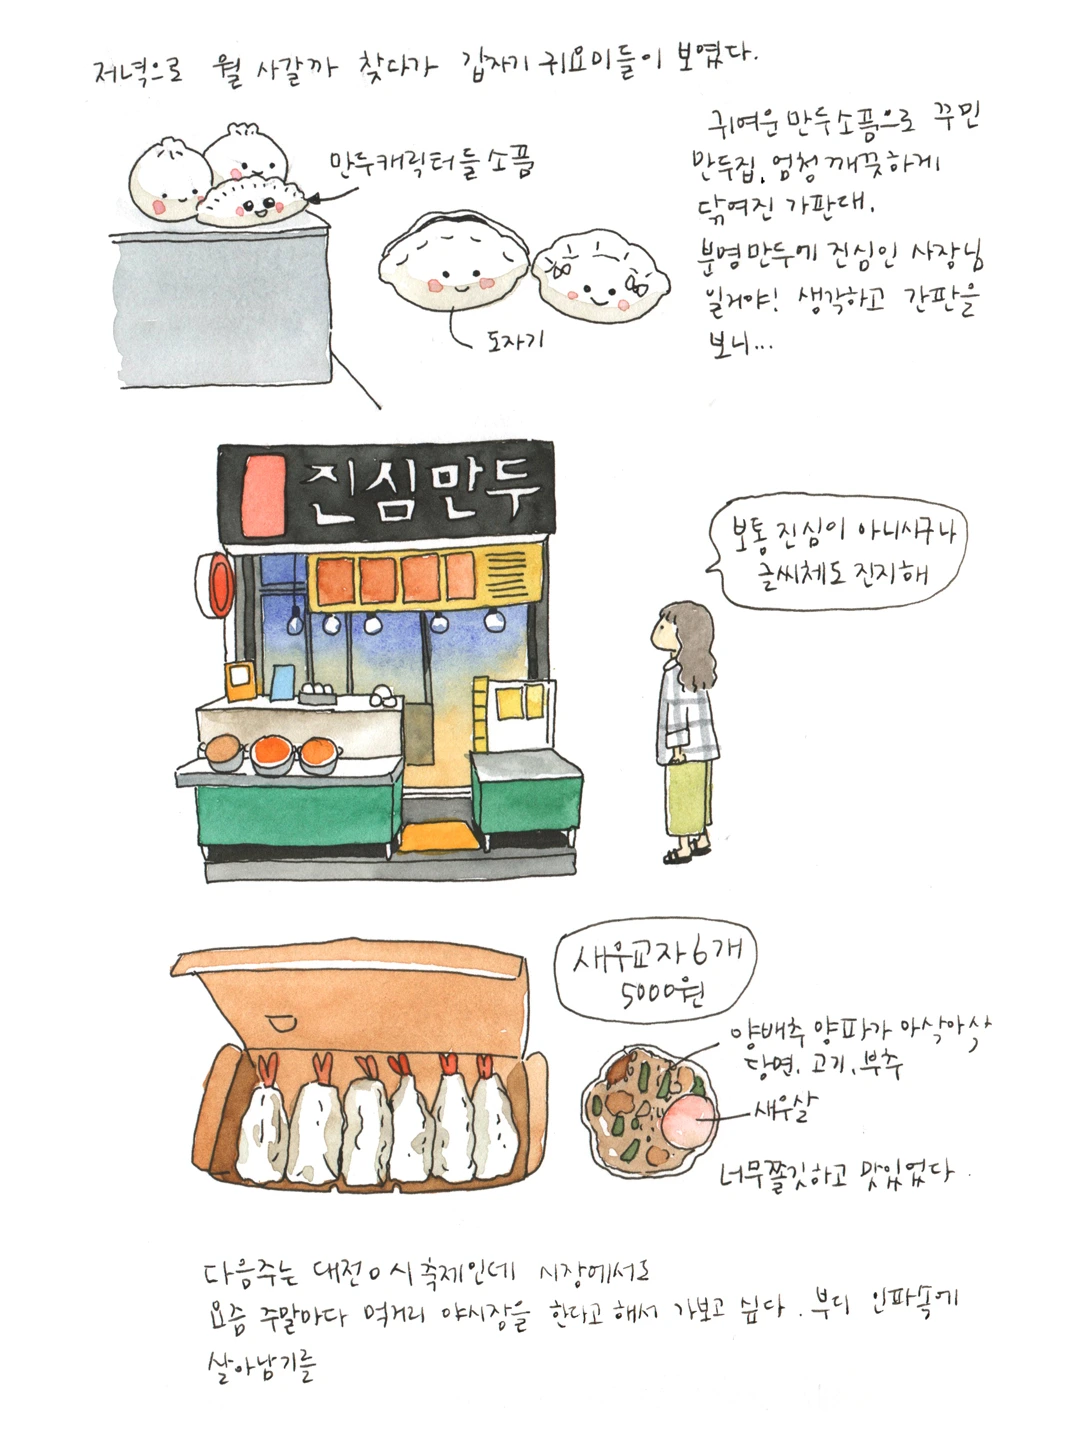 저녁으로 뭘 사갈까 찾다가 갑자기 귀요미들이 보였다.
만두캐릭터들 소품
도자기
귀여운 만두소품으로 꾸민
만두집, 엄청 깨끗하게
닦여진 가판대.
분명 만두에 진심인 사장님
일거야! 생각하고 간판을
보니...
진심만두
보통 진심이 아니시구나
글씨체도 진지해
새우교자 6개
5000원
양배추 양파가 아삭아삭
당면, 고기, 부추
새우살
너무쫄깃하고 맛있었다.
다음주는 대전 0시축제인데 시장에서도
요즘 주말마다 먹거리 야시장을 한다고 해서 가보고 싶다. 부디 인파속에
살아남기를